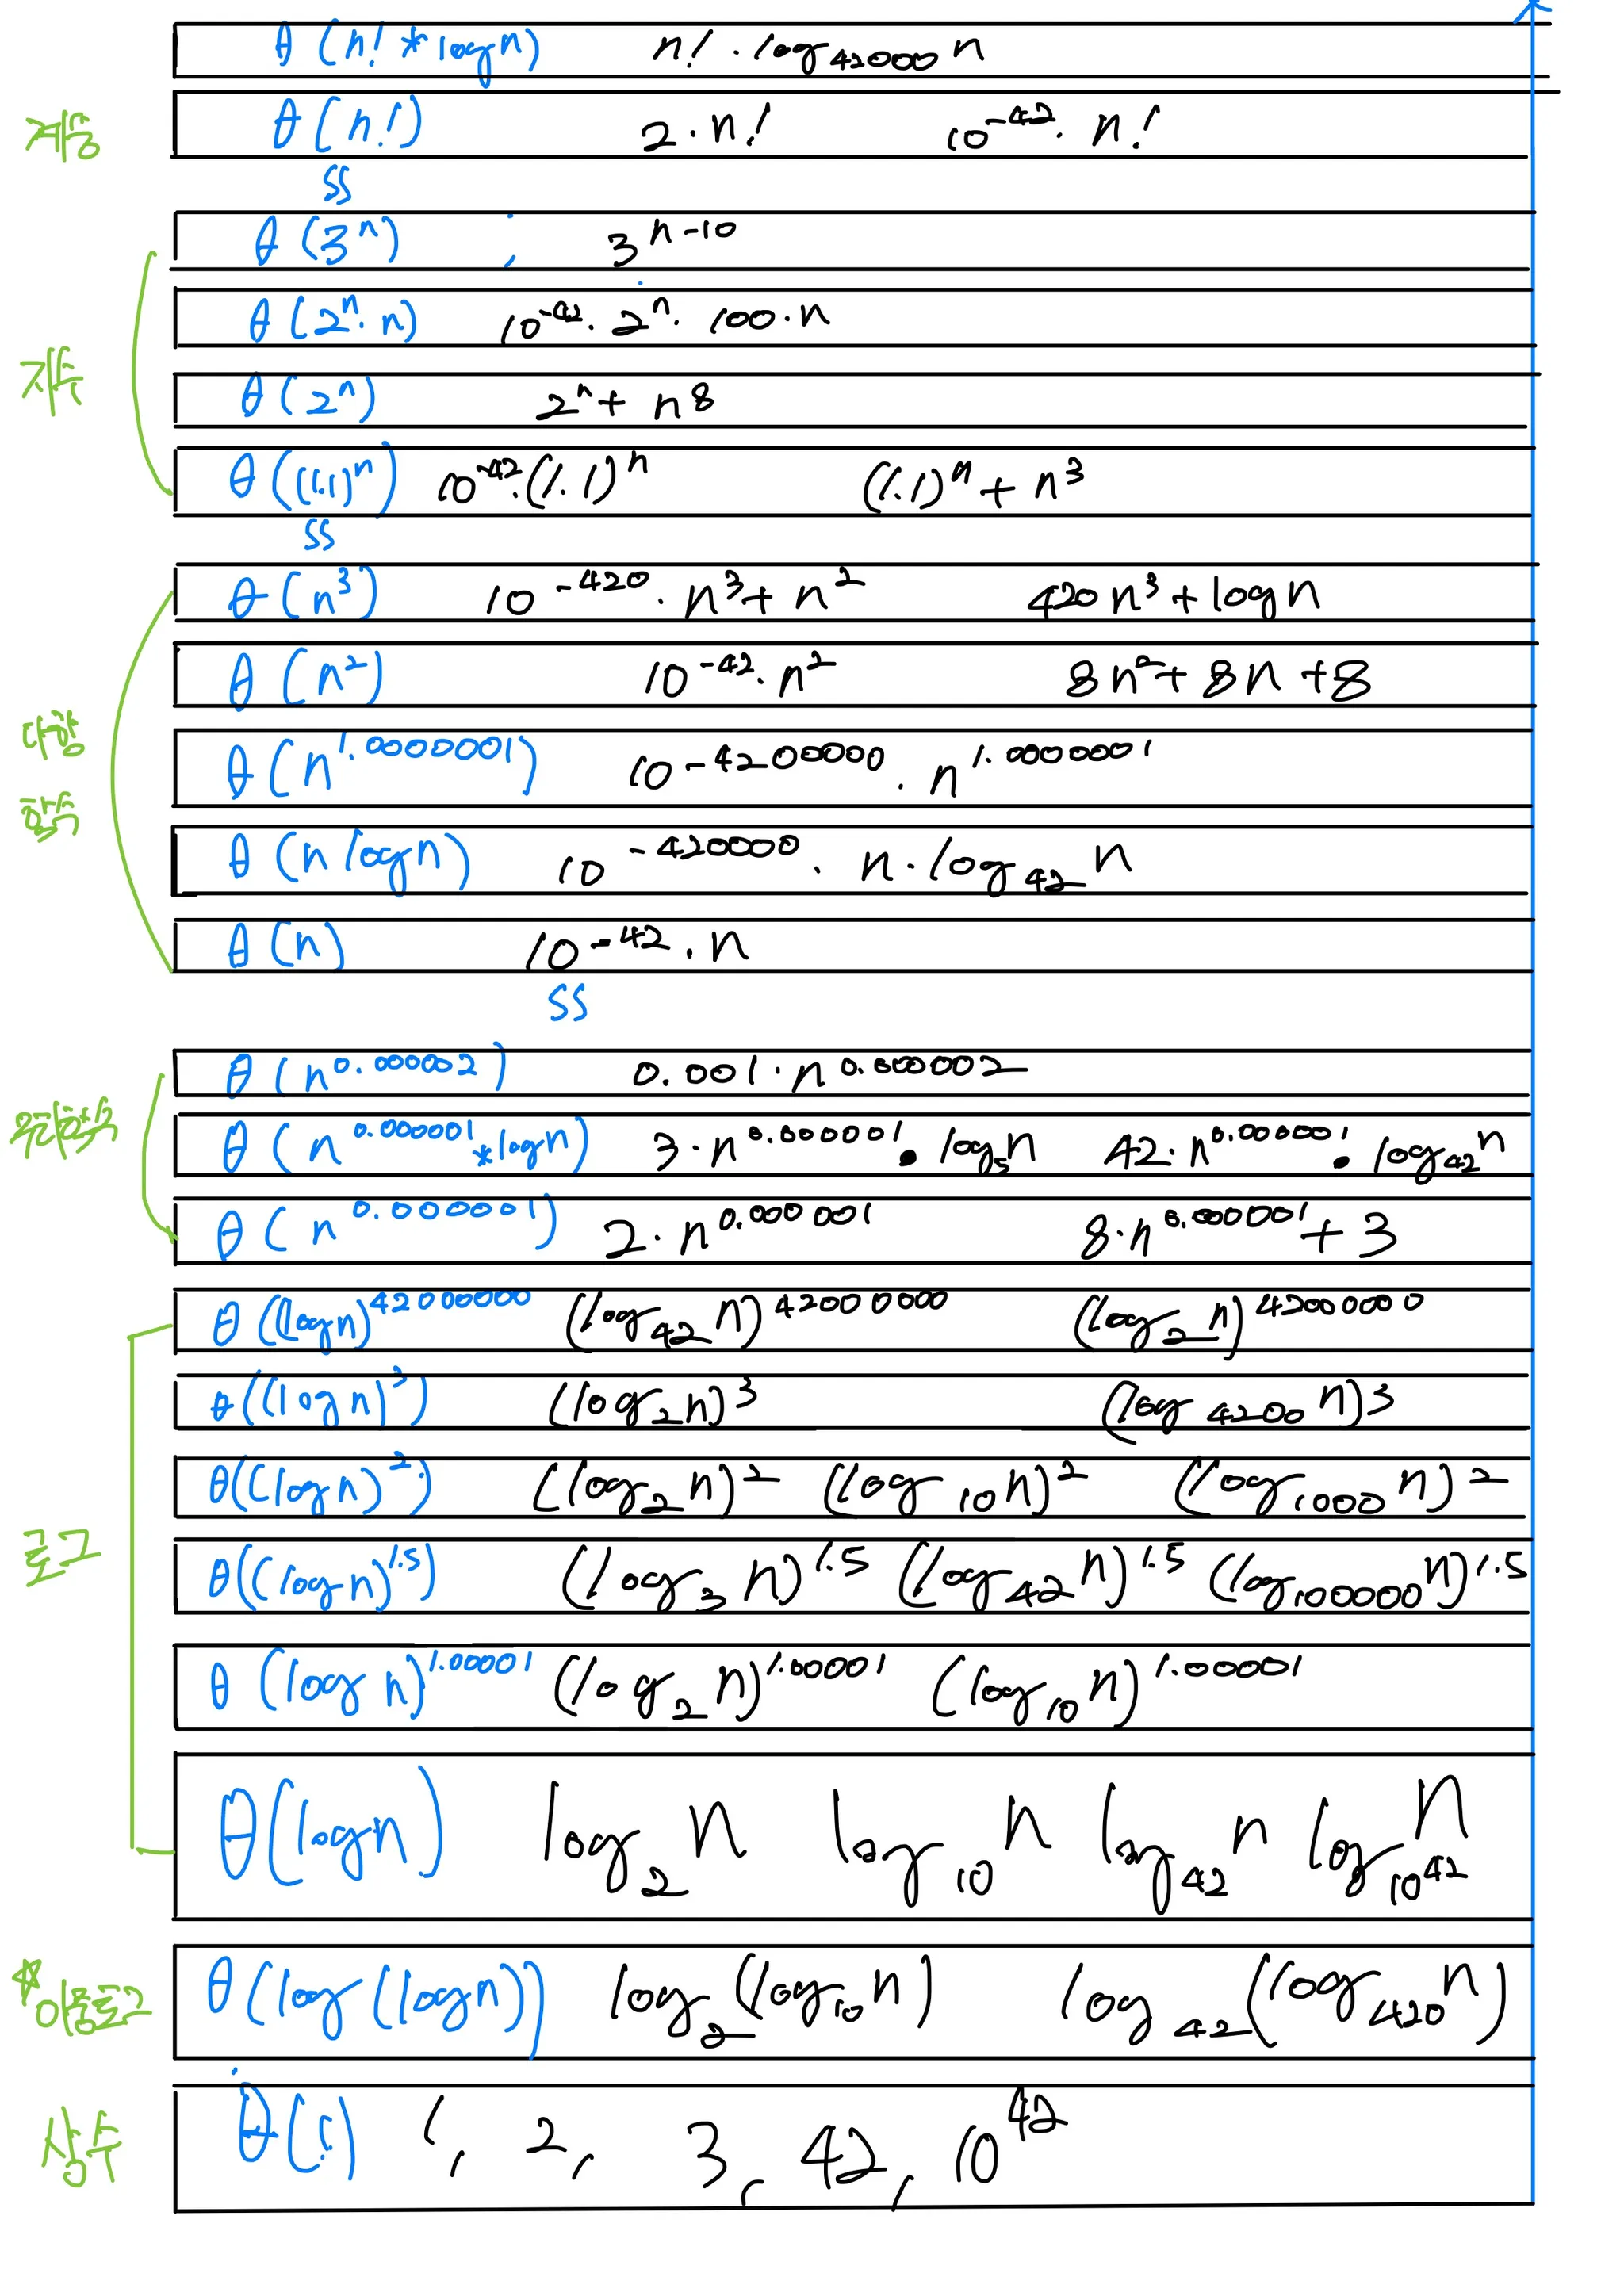 θ (n! * log n) n! · log₄₂₀₀₀ n
계승 θ (n!) 2 · n! 10⁻⁴² · n!
SS
θ (3ⁿ) , 3ⁿ⁻¹⁰
θ (2ⁿ · n) 10⁻⁴² · 2ⁿ · 100 · n
지수 θ (2ⁿ) 2ⁿ + n⁸
θ ((1.1)ⁿ) 10⁻⁴² · (1.1)ⁿ (1.1)ⁿ + n³
SS
θ (n³) 10⁻⁴²⁰ · n³ + n² 420n³ + log n
θ (n²) 10⁻⁴² · n² 8n² + 8n + 8
다항
θ (n^1.00000001) 10^-4200000 · n^1.00000001
함수
θ (n log n) 10^-420000 · n · log₄₂ n
θ (n) 10⁻⁴² · n
SS
θ (n^0.000002) 0.001 · n^0.000002
θ (n^0.000001 * log n) 3 · n^0.000001 · log₅ n 42 · n^0.000001 · log₄₂ n
θ (n^0.000001) 2 · n^0.000001 8 · n^0.000001 + 3
θ ((log n)^42000000) (log₄₂ n)^42000000 (log₂ n)^42000000
θ ((log n)³) (log₂ n)³ (log₄₂₀₀ n)³
θ ((log n)²) (log₂ n)² (log₁₀ n)² (log₁₀₀₀ n)²
로그 θ ((log n)^1.5) (log₃ n)^1.5 (log₄₂ n)^1.5 (log₁₀₀₀₀₀ n)^1.5
θ (log n)^1.00001 (log₂ n)^1.00001 (log₁₀ n)^1.00001
θ (log n) log₂ n log₁₀ n log₄₂ n log_10^42 n
☆이중로그 θ (log (log n)) log₂ (log₁₀ n) log₄₂ (log₄₂₀ n)
상수 θ (1) 1, 2, 3, 42, 10⁴²